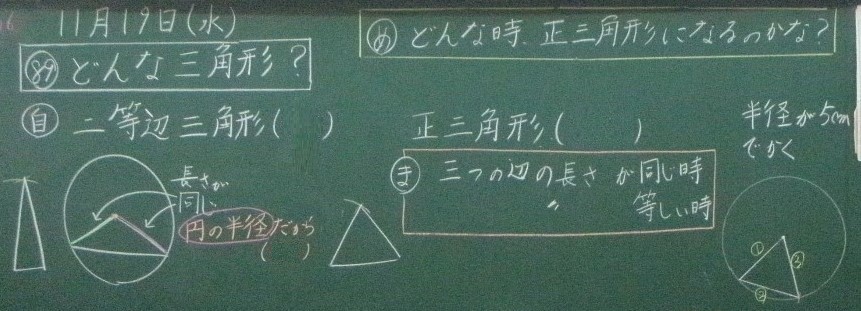 11月19日(水)
89 どんな三角形?
め どんな時、正三角形になるのかな?
自 二等辺三角形( )
長さが
同じ
円の半径だから
( )
正三角形( )
ま 三つの辺の長さが同じ時
〃 等しい時
半径が5cm
でかく
①
②
③